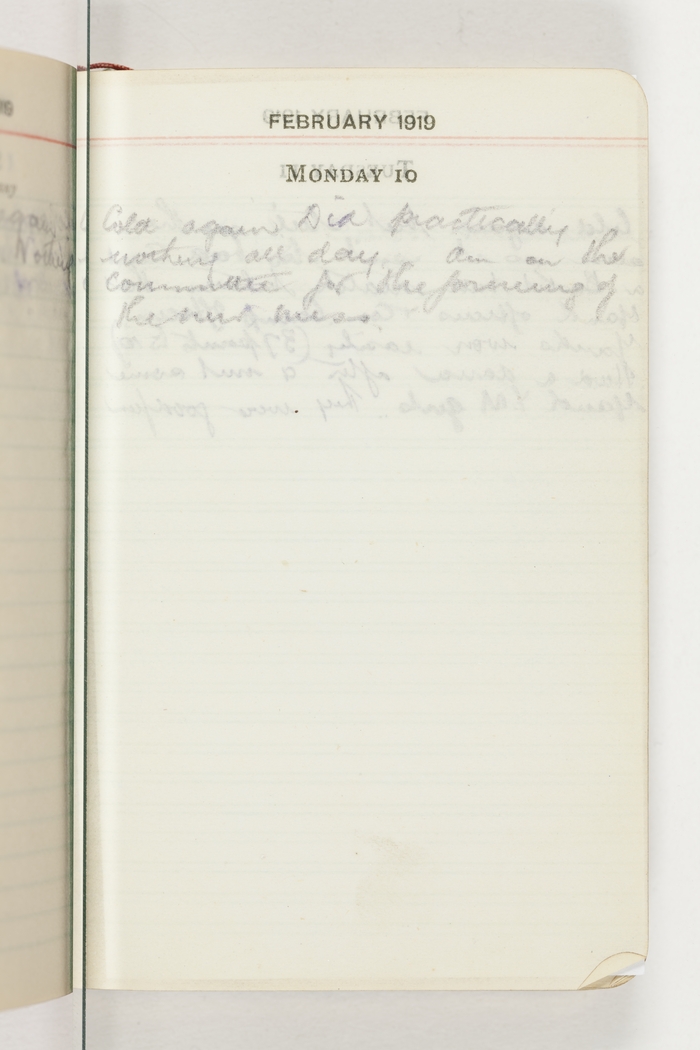 FEBRUARY 1919
MONDAY 10
Cold again Did practically
nothing all day. Am on the
committee for the forming of
the new mess.